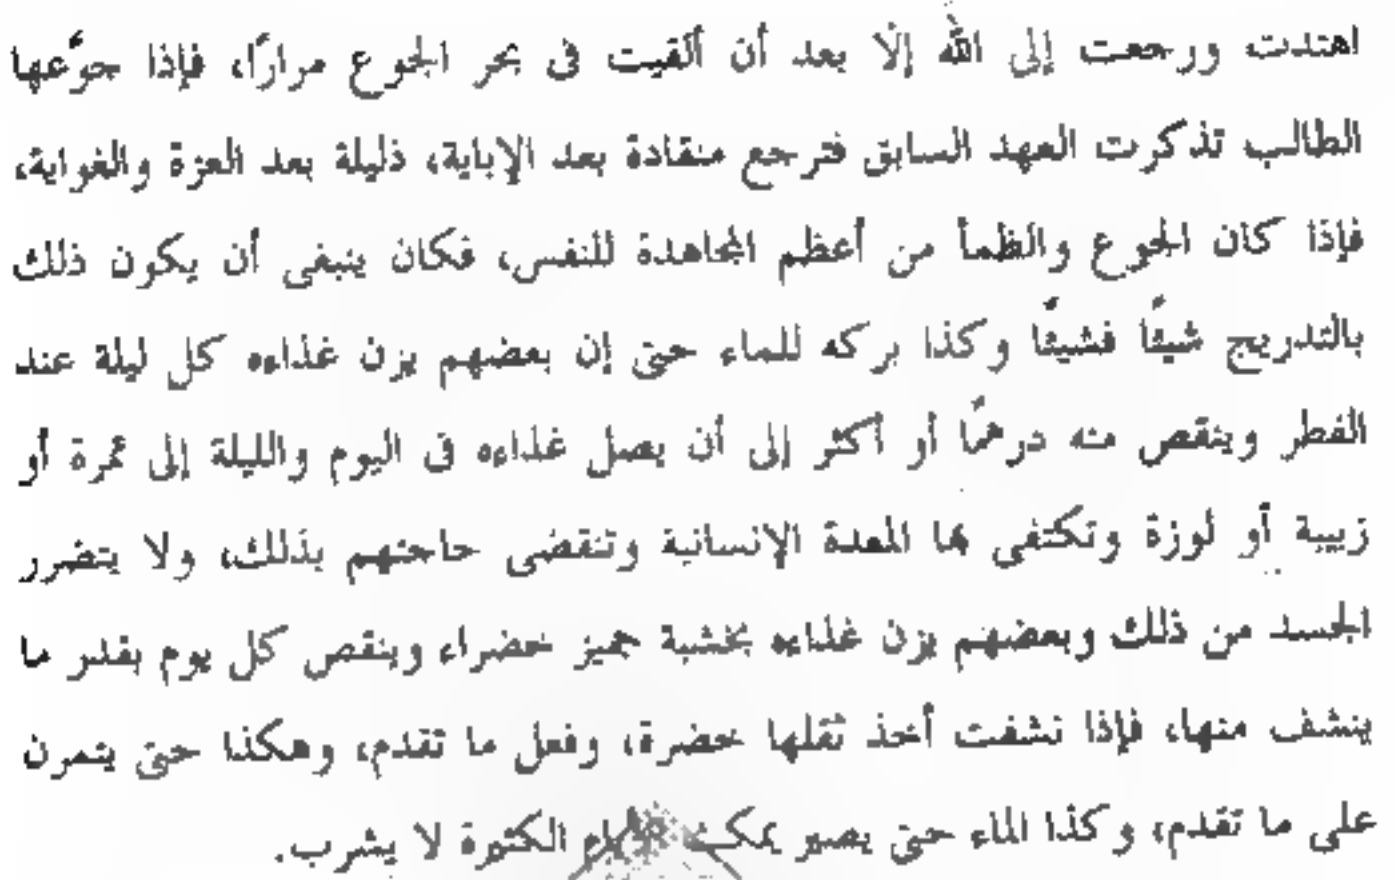 اهتدت ورجعت إلى الله إلا بعد أن ألقيت فى بحر الجوع مرارًا، فإذا جوَّعها
الطالب تذكرت العهد السابق فترجع منقادة بعد الإباية، ذليلة بعد العزة والغواية،
فإذا كان الجوع والظمأ من أعظم المجاهدة للنفس، فكان ينبغى أن يكون ذلك
بالتدريج شيئًا فشيئًا وكذا بركه للماء حتى إن بعضهم يزن غذاءه كل ليلة عند
الفطر وينقص منه درهمًا أو أكثر إلى أن يصل غذاءه فى اليوم والليلة إلى تمرة أو
زبيبة أو لوزة وتكتفى بها المعدة الإنسانية وتنقضى حاجتهم بذلك، ولا يتضرر
الجسد من ذلك وبعضهم يزن غذاءه بخشبة جميز خضراء وينقص كل يوم بقدر ما
ينشف منها، فإذا نشفت أخذ ثقلها خضرة، وفعل ما تقدم، وهكذا حتى يتمرن
على ما تقدم، وكذا الماء حتى يصير يمكث الأيام الكثيرة لا يشرب.